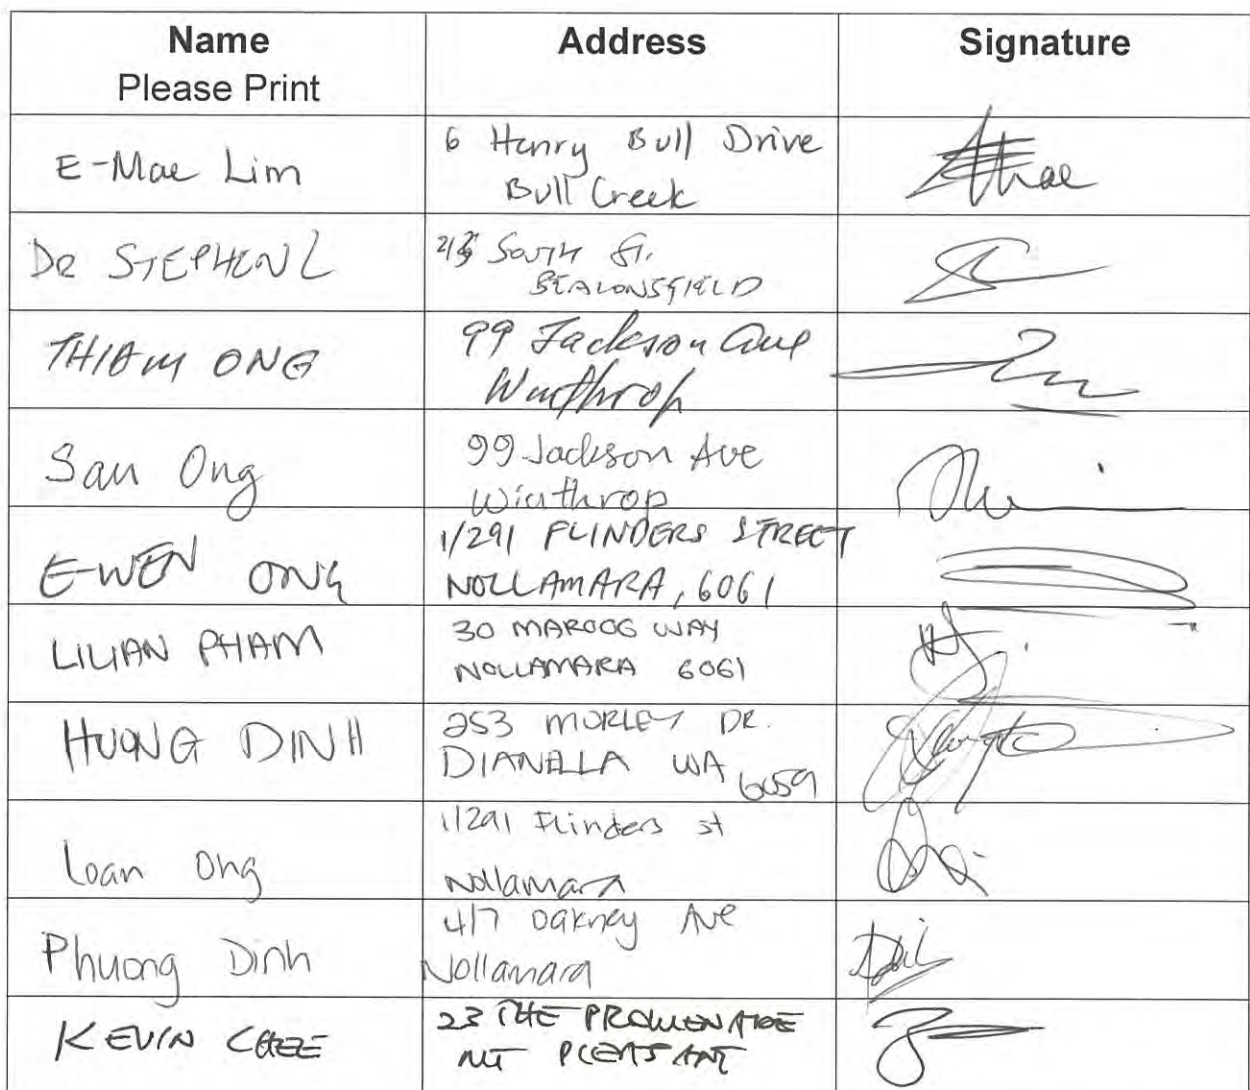 Name
Please Print
Address
Signature
E-Mae Lim
6 Henry Bull Drive
Bull Creek
DR STEPHEN L
South St.
BEACONSFIELD
THIAM ONG
99 Jackson Ave
Winthrop
San Ong
99 Jackson Ave
Winthrop
E-WEN ONG
1/291 FLINDERS STREET
NOLLAMARA, 6061
LILIAN PHAM
30 MAROOG WAY
NOLLAMARA 6061
HUONG DINH
253 MORLEY DR.
DIANELLA WA 6059
Loan Ong
1/291 Flinders st
Nollamara
Phuong Dinh
4/7 Oakney Ave
Nollamara
KEVIN CHEE
23 THE PROMENADE
MT PLEASANT